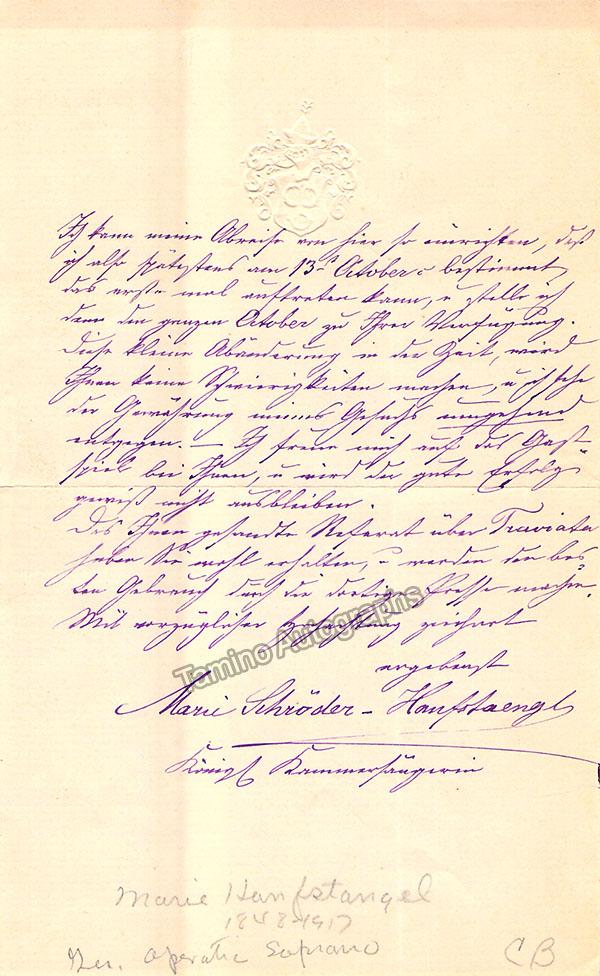 Ich kann meine Abreise von hier so einrichten, daß
ich also spätestens am 13t October bestimmt
das erste mal auftreten kann, u stelle ich
dann den ganzen October zu Ihrer Verfügung.
Diese kleine Abänderung in der Zeit, wird
Ihnen keine Schwierigkeiten machen, u ich sehe
der Gewährung meines Gesuchs umgehend
entgegen. — Ich freue mich auf das Gast-
spiel bei Ihnen, u wird der gute Erfolg
gewiß nicht ausbleiben.
Das Ihnen gesandte Referat über Traviata
haben Sie wohl erhalten, u werden den bes-
ten Gebrauch durch die dortige Presse machen.
Mit vorzüglicher Hochachtung zeichnet
ergebenst
Marie Schröder-Hanfstaengl
Königl Kammersängerin
Tamino Autographs
Marie Hanfstangel
1848-1917
Ger. operatic Soprano
CB